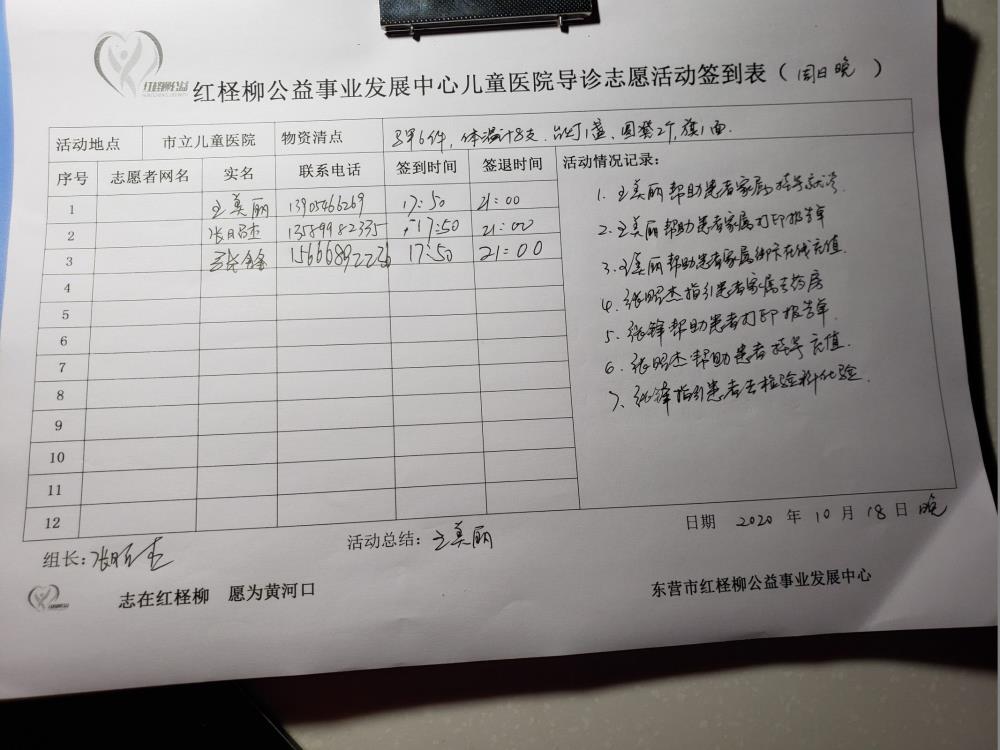 红柽柳公益
红柽柳公益事业发展中心儿童医院导诊志愿活动签到表（周日晚）
活动地点 市立儿童医院 物资清点 马甲6件，体温计8支，台灯1盏，圆凳2个，旗1面.
序号 志愿者网名 实名 联系电话 签到时间 签退时间 活动情况记录：
1 王美丽 13905466269 17:50 21:00
2 张昭杰 13589982335 17:50 21:00
3 张锋 15666892226 17:50 21:00
4
5
6
7
8
9
10
11
12
1. 王美丽帮助患者家属挂号就诊.
2. 王美丽帮助患者家属打印报告单
3. 王美丽帮助患者家属绑卡在线充值.
4. 张昭杰指引患者家属去药房
5. 张锋帮助患者打印报告单.
6. 张昭杰帮助患者挂号充值.
7. 张锋指引患者去检验科化验.
组长：张昭杰 活动总结：王美丽 日期 2020 年 10 月 18 日 晚
志在红柽柳 愿为黄河口 东营市红柽柳公益事业发展中心